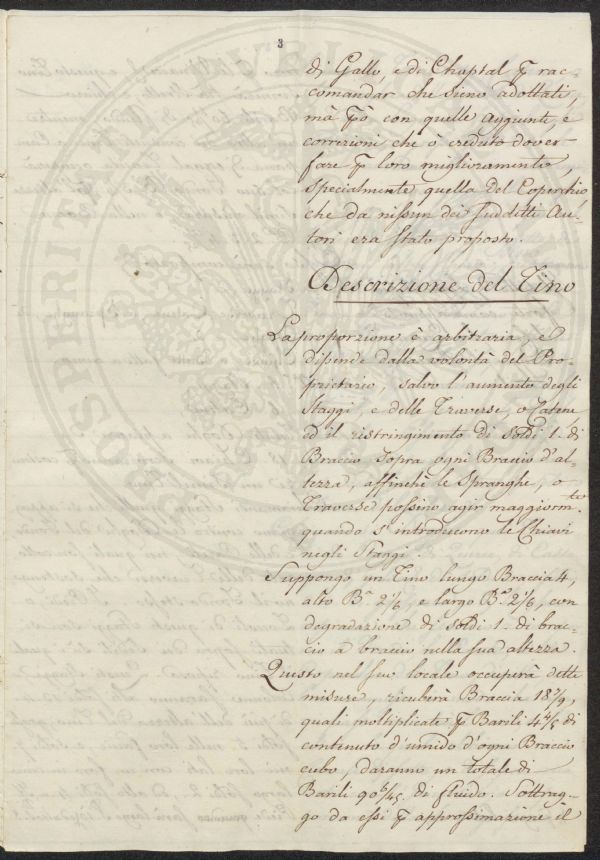 3
di Gallo, e di Chaptal p rac=
comandar che sieno adottati,
mà pò con quelle aggiunte, e
correzioni che ò creduto dover
fare p loro miglioramento,
specialmente quella del Coperchio
che da nissun dei sudditti Au=
tori era stato proposto.
Descrizione del Tino
La proporzione è arbitraria, e
dipende dalla volontà del Pro=
prietario, salvo l'aumento degli
Staggi, e delle Traverse, o Catene
ed il ristringimento di soldi 1. di
Braccio sopra ogni Braccio d'al=
tezza, affinchè le Spranghe, o
Traverse possino agir maggiorm.te
quando s'introducono le Chiavi
negli Staggi.
Suppongo un Tino lungo Braccia 4,
alto B.a 2 1/6, e largo B.a 2 1/6, con
degradazione di soldi 1. di brac=
cio a braccio nella sua altezza.
Questo nel suo locale occuperà dette
misure, ricuberà Braccia 18 7/9,
quali moltiplicate p Barili 4 4/5 di
contenuto d'umido d'ogni Braccio
cubo, daranno un totale di
Barili 90 6/45 di fluido. Sottrag=
go da essi p approssimazione il